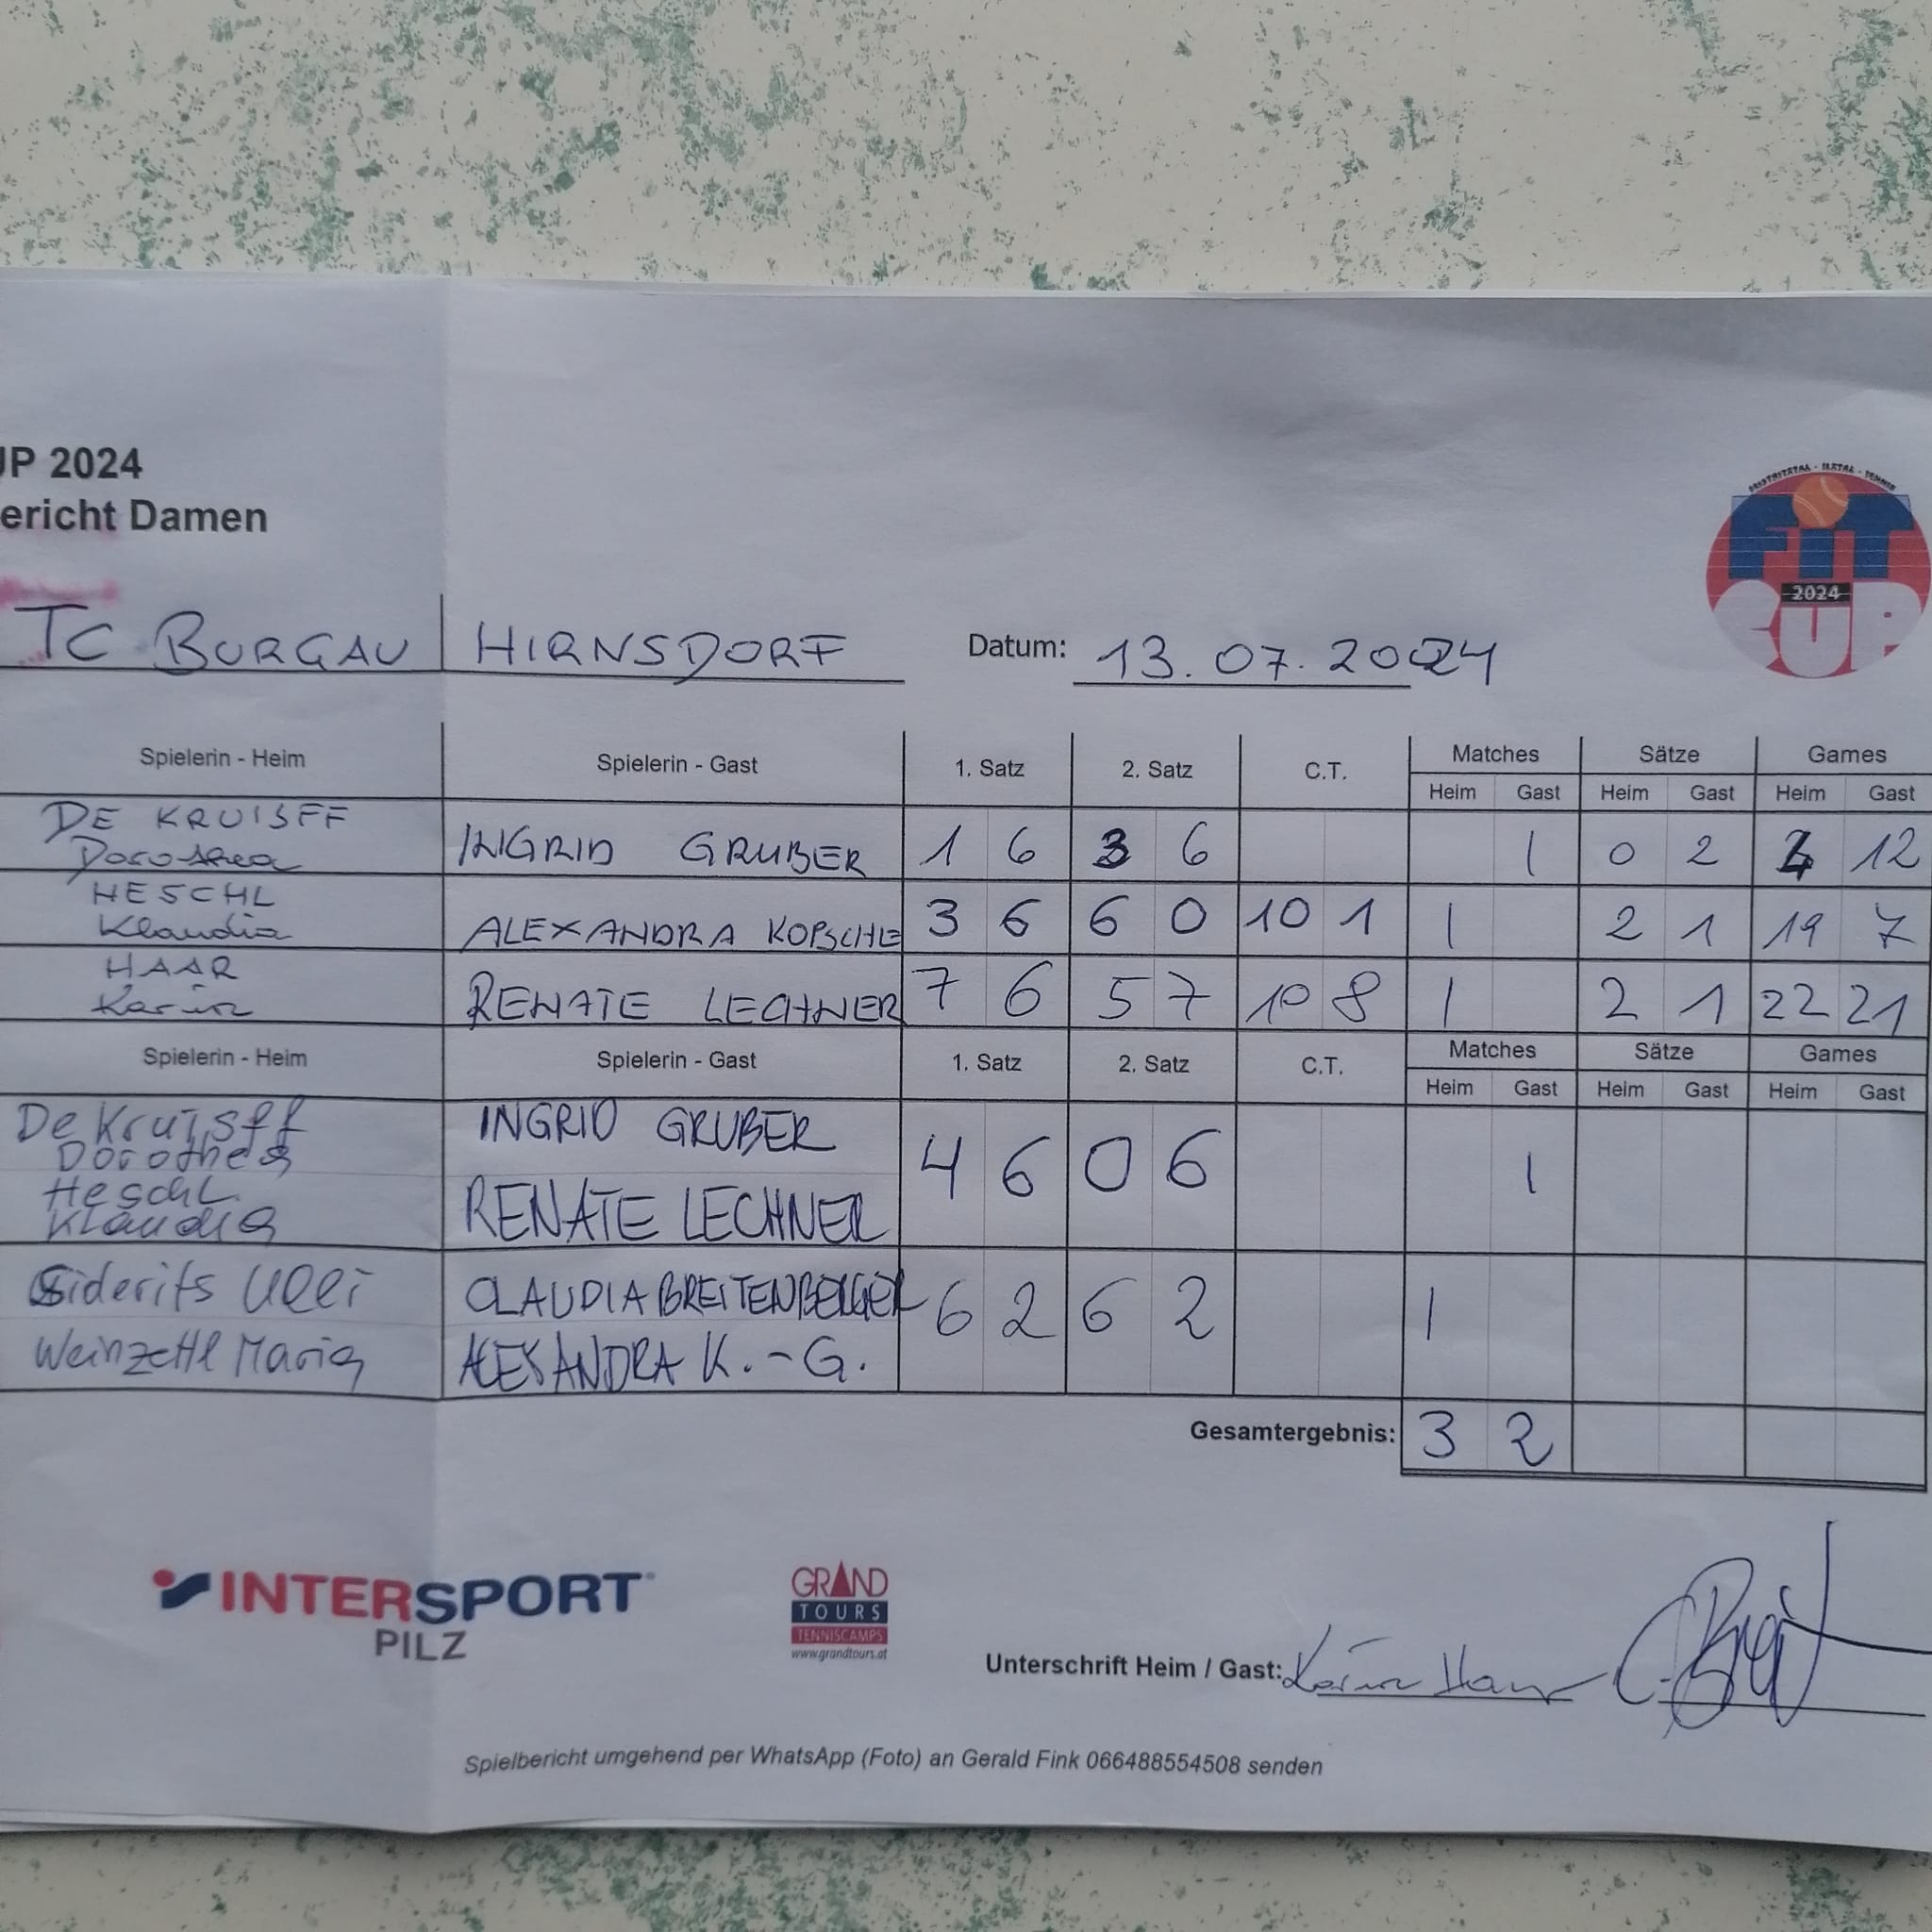 UP 2024
ericht Damen
FELDBACH
FiT
2024
CUP
TC BURGAU HIRNSDORF Datum: 13.07.2024
Spielerin - Heim Spielerin - Gast 1. Satz 2. Satz C.T. Matches Sätze Games
Heim Gast Heim Gast Heim Gast
DE KRUISFF
Dorothea INGRID GRUBER 1 6 3 6 1 0 2 4 12
HESCHL
Klaudia ALEXANDRA 3 6 6 0 10 1 1 2 1 19 7
HAAR
Karin RENATE LECHNER 7 6 5 7 10 8 1 2 1 22 21
Spielerin - Heim Spielerin - Gast 1. Satz 2. Satz C.T. Matches Sätze Games
Heim Gast Heim Gast Heim Gast
De Kruijff INGRID GRUBER
Dorothea 4 6 0 6 1
Heschl
Klaudia RENATE LECHNER
Siderits Ulli CLAUDIA BREITENBERGER 6 2 6 2 1
Weinzettl Maria ALESANDRA K.-G.
Gesamtergebnis: 3 2
INTERSPORT
PILZ
GRAND
TOURS
TENNISCAMPS
www.grandtours.at
Unterschrift Heim / Gast: Karin Haar
Spielbericht umgehend per WhatsApp (Foto) an Gerald Fink 066488554508 senden